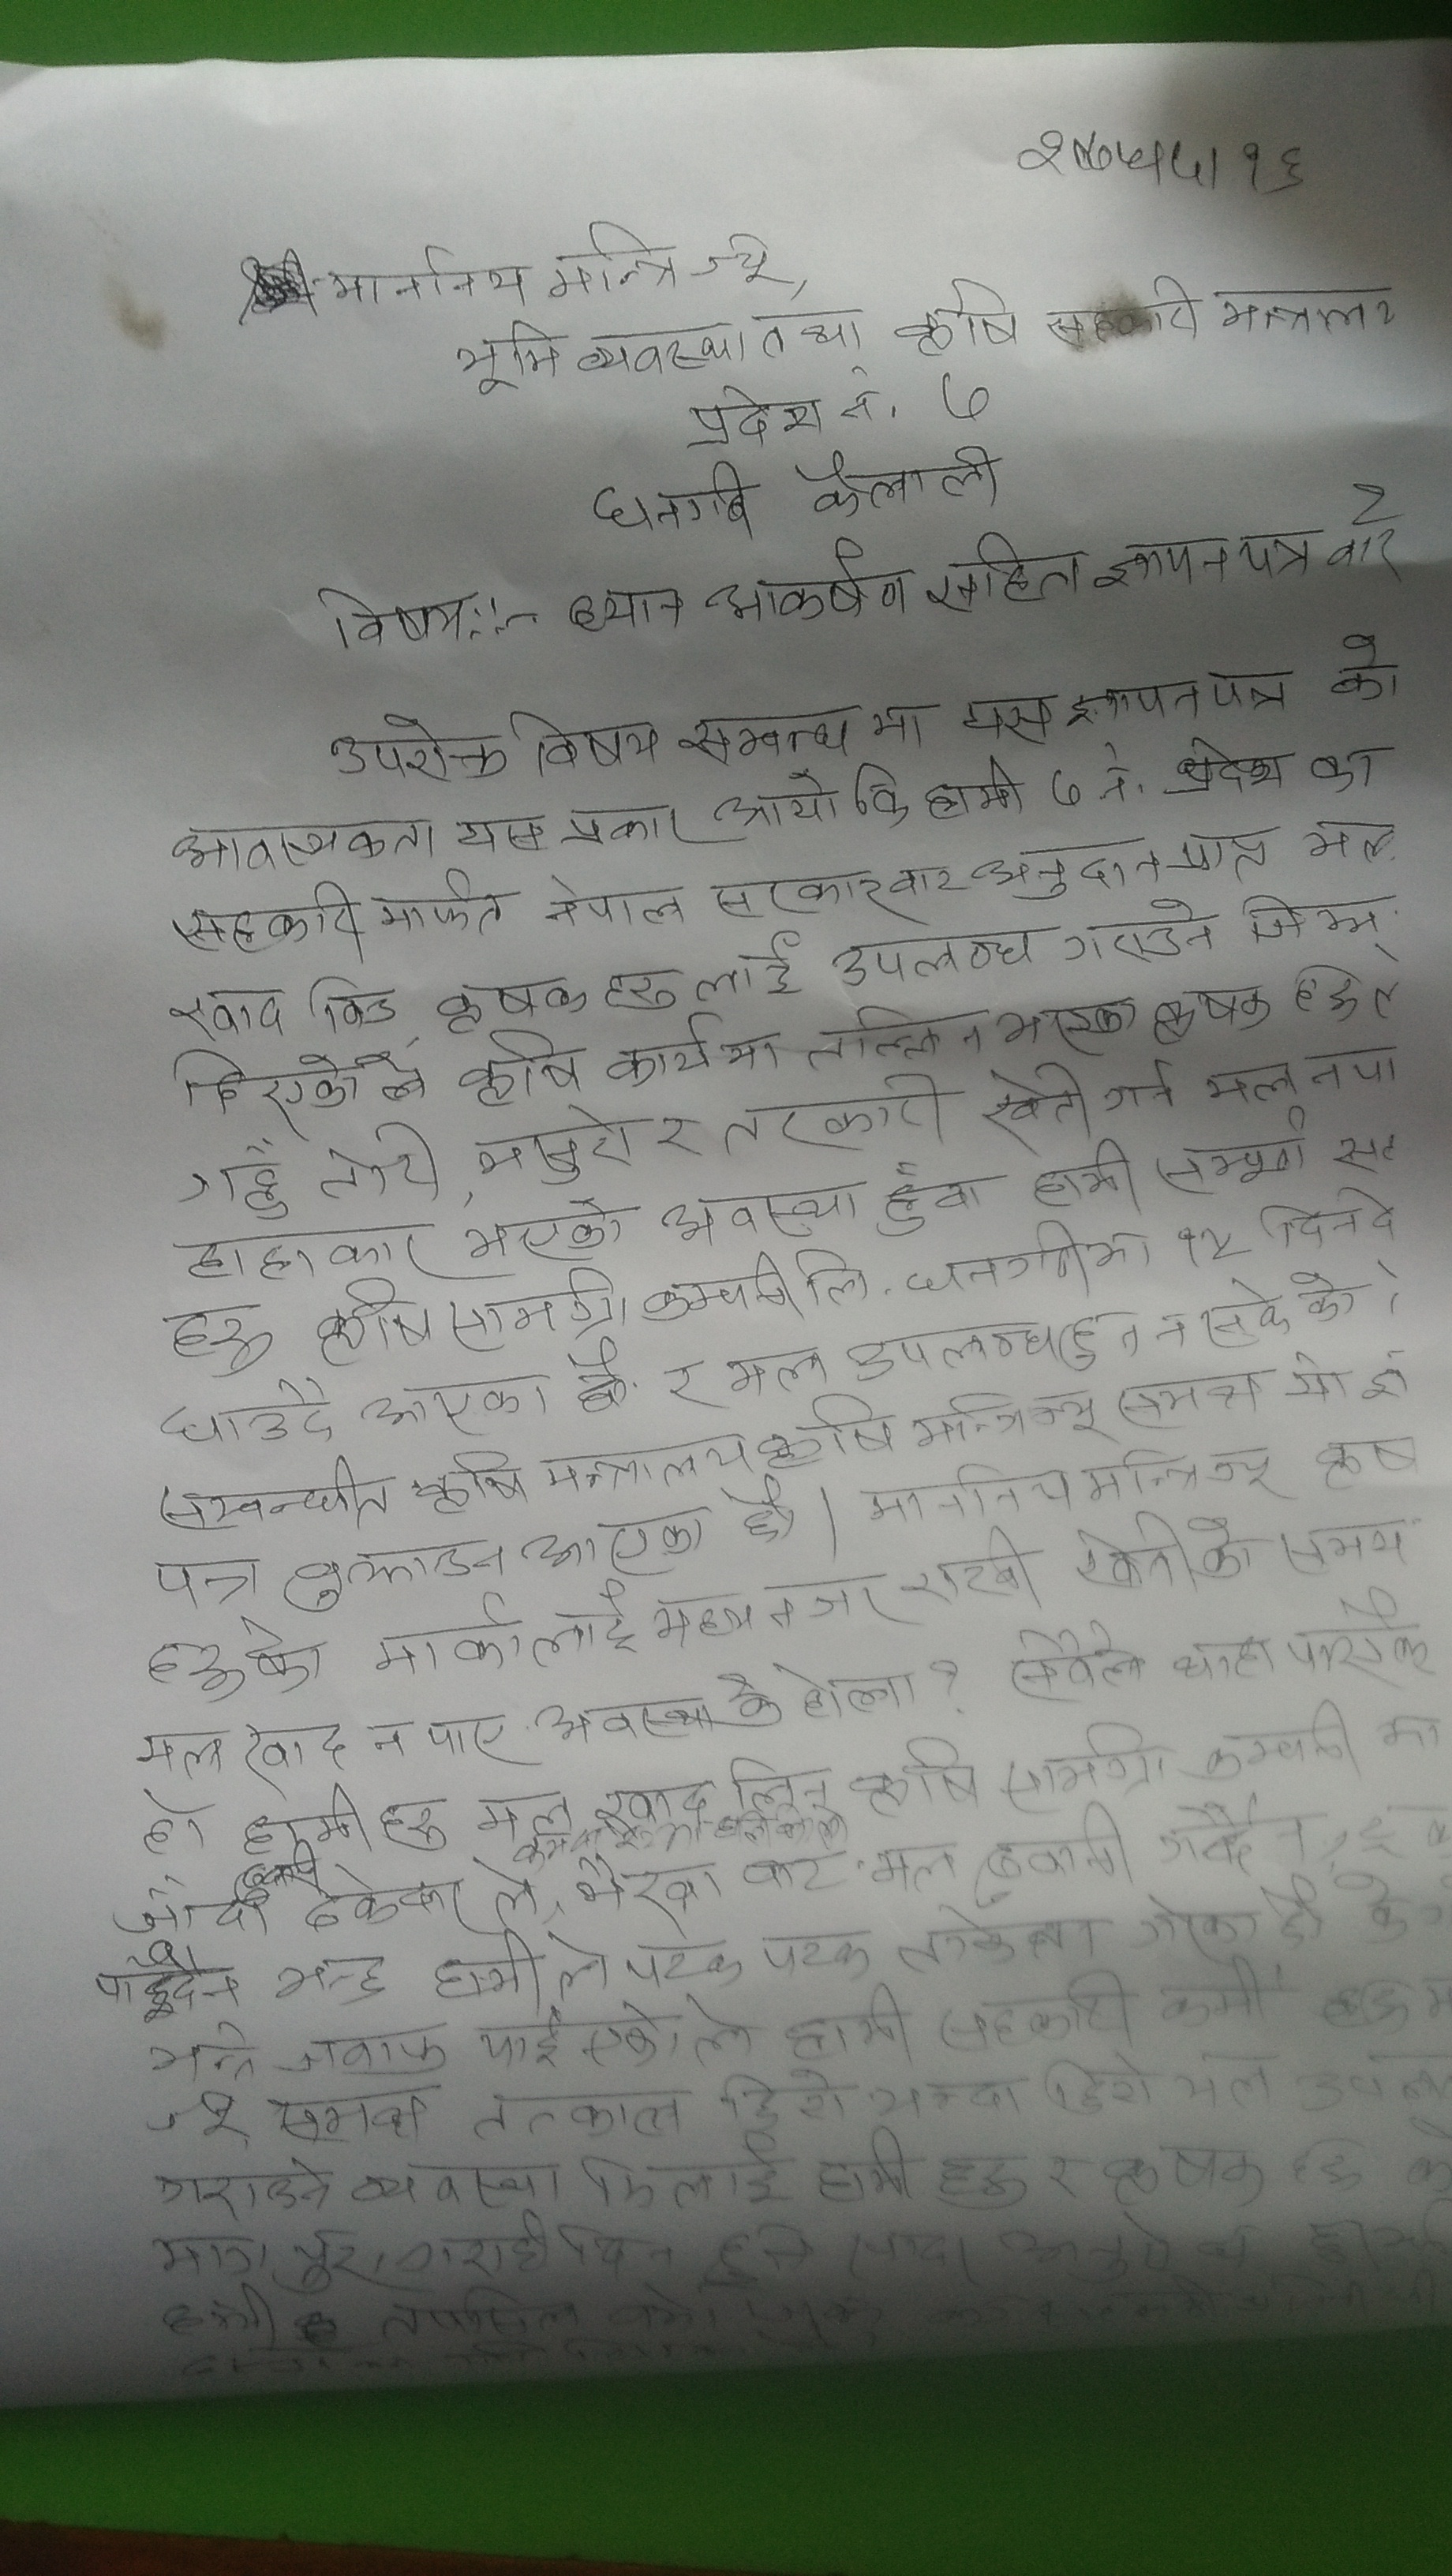 माननिय मन्त्रिज्यू,
भूमि व्यवस्था तथा कृषि सहकारी मन्त्रालय
प्रदेश नं. ७
धनगढी कैलाली
विषयः- ध्यान आकर्षण सहित ज्ञापन पत्र वारे
उपरोक्त विषय सम्वन्ध मा यस ज्ञापन पत्र को
आवस्यकता यस प्रकार आयो कि हामी ७ नं. प्रदेश का
सहकारी मार्फत नेपाल सरकारवाट अनुदान प्राप्त मल
खाद विउ कृषक हरु लाई उपलब्ध गराउने जिम्म
दिएकोले कृषि कार्यमा तल्लिन भएका कृषक हरुले
गहुँ तोरी, मसुरो र तरकारी खेती गर्न मल नपा
हाहाकार भएको अवस्था हुँदा हामी सम्पूर्ण सह
हरु कृषि सामग्री कम्पनी लि. धनगढीमा १५ दिन दे
धाउदै आएका छौ र मल उपलब्ध हुन न सकेको
सम्वन्धीत कृषि मन्त्रालय कृषि मन्त्रिज्यू समक्ष यो ज्ञा
पत्र वुझाउन आएका छौ। माननिय मन्त्रिज्यू कृष
हरुको मार्कालाई मध्यनजर राखी खेतीको समय
मल खाद न पाए अवस्था के होला? सवैले थाहा पाएकै
हो हामी हरु मल खाद लिन कृषि सामग्री कम्पनी मा
जाँदा ठेकेदार ले, भैरवा वाट मल ढुवानी गर्दैन,
पाईदैन भन्छ हामीले पटक पटक ताकेता गरेका छौ
भन्ने जवाफ पाईएकोले हामी सहकारी कर्मी हरु
ज्यू समक्ष तत्काल छिटो भन्दा छिटो मल उपल
गराउने व्यवस्था मिलाई हामी हरु र कृषक हरु को
माग पुरा गराई दिन हुन सादर अनुरोध